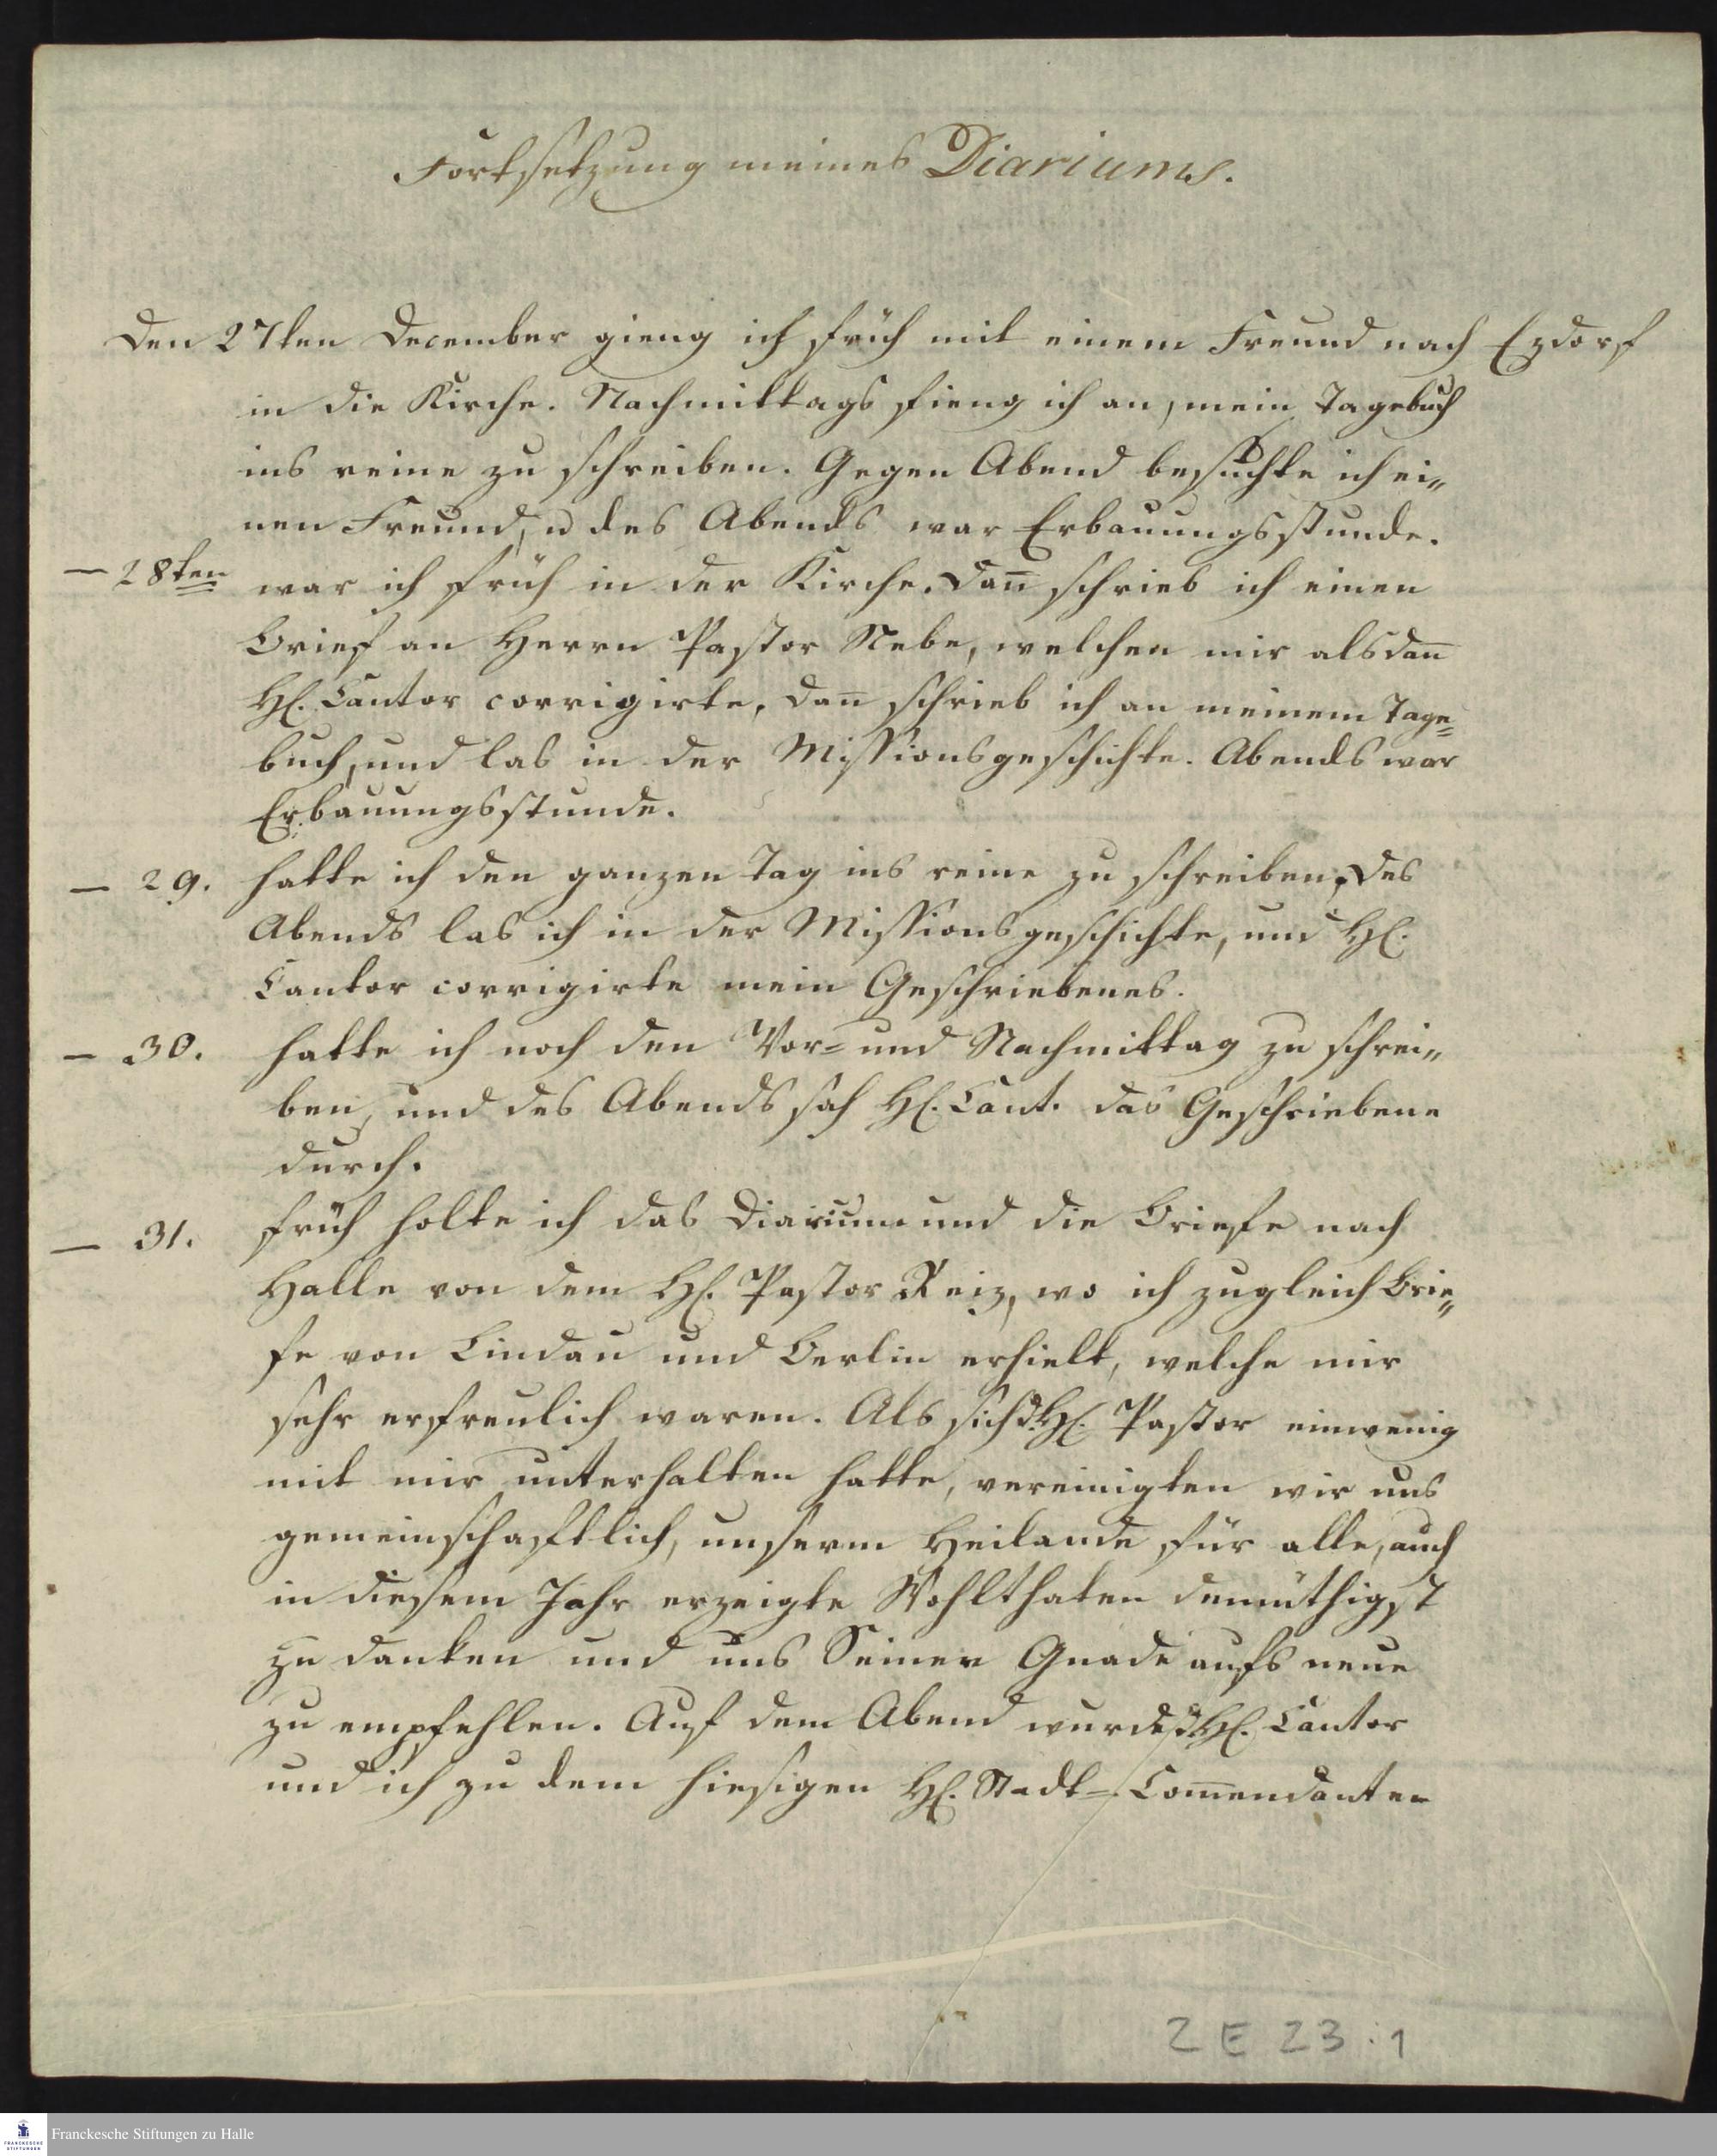 Fortsetzung meines Diariums.
Den 27ten December gieng ich früh mit einem Freund nach Ezdorf
in die Kirche. Nachmittags fieng ich an, mein Tagebuch
ins reine zu schreiben. Gegen Abend besuchte ich ei„
nen Freund, u des Abends war Erbauungsstunde.
— 28ten war ich früh in der Kirche. Dan̅ schrieb ich einen
Brief an Herrn Pastor Nebe, welchen mir alsdan̅
H. Cantor corrigirte, dan̅ schrieb ich an meinem Tage=
buch, und las in der Missionsgeschichte. Abends war
Erbauungsstunde.
— 29. hatte ich den ganzen Tag ins reine zu schreiben, des
Abends las ich in der Missionsgeschichte, und H.
Cantor corrigirte mein Geschriebenes.
— 30. hatte ich noch den Vor= und Nachmittag zu schrei„
ben, und des Abends sah H. Cant. das Geschriebene
durch.
— 31. früh holte ich das Diarium und die Briefe nach
Halle von dem H. Pastor Reiz, wo ich zugleich Brie„
fe von Lindau und Berlin erhielt, welche mir
sehr erfreulich waren. Als sich d. H. Pastor einwenig
mit mir unterhalten hatte, vereinigten wir uns
gemeinschaftlich, unserm Heilande für alle, auch
in diesem Jahr erzeigte Wohlthaten demüthigst
zu danken und uns Seiner Gnade aufs neue
zu empfehlen. Auf dem Abend wurde d. H. Cantor
und ich zu dem hiesigen H. Stadt= Com̅endanten
2 E 23 : 1
FRANCKESCHE STIFTUNGEN
Franckesche Stiftungen zu Halle